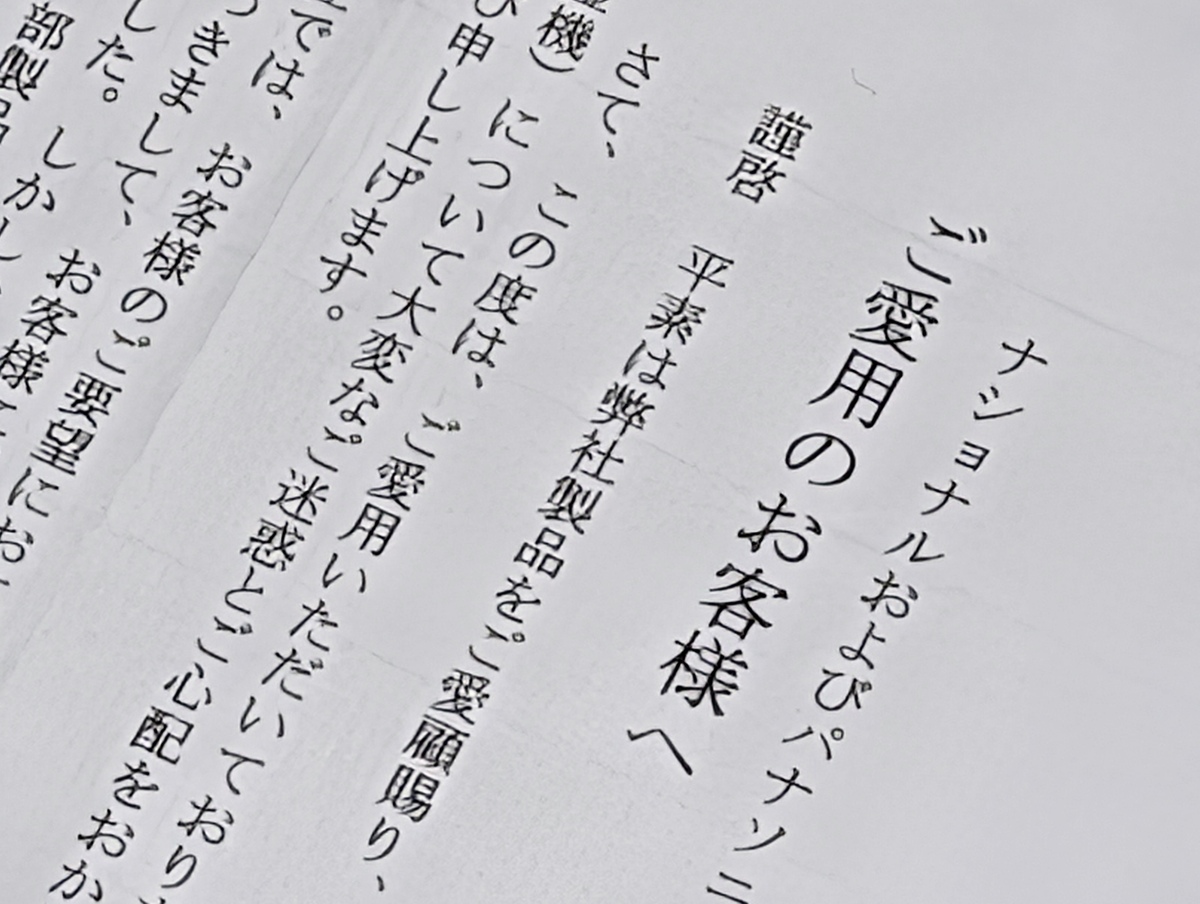 ナショナルおよびパナソニ
ご愛用のお客様へ
謹啓 平素は弊社製品をご愛顧賜り、
さて、この度は、ご愛用いただいており
機）について大変なご迷惑とご心配をおか
び申し上げます。
では、お客様のご要望にお
つきまして、お客様に
した。しかし、
部製品